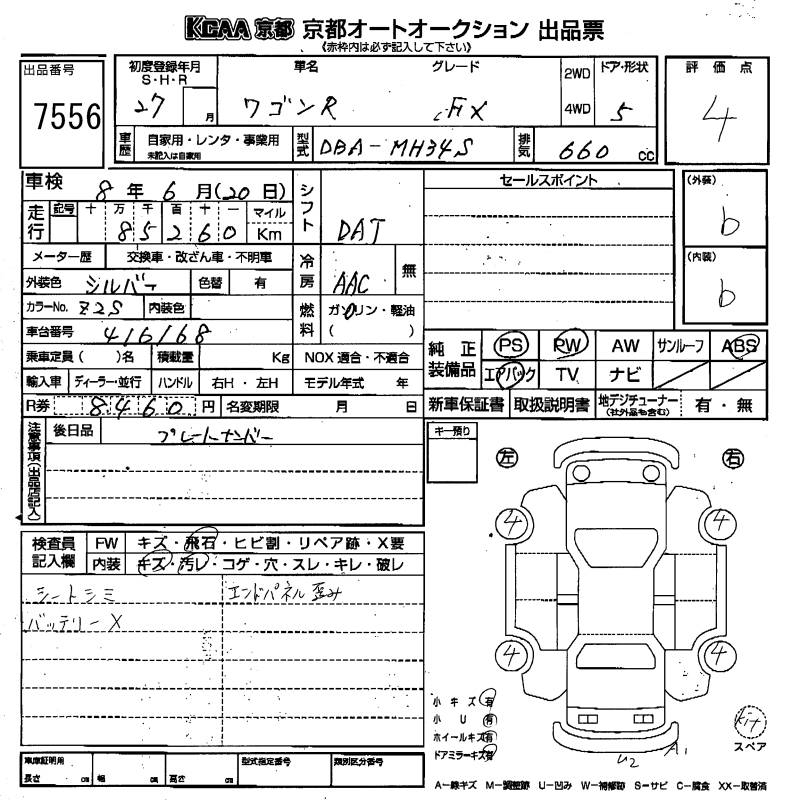 KCAA 京都 京都オートオークション 出品票
《赤枠内は必ず記入して下さい》
出品番号
7556
初度登録年月
S・H・R
27 月
車名
ワゴンR
グレード
FX
2WD
4WD
ドア・形状
5
評価点
4
車歴
自家用・レンタ・事業用
未記入は自家用
型式
DBA-MH34S
排気
660 cc
車検 8年 6月(20日)
走行
記号 十 万 千 百 十 一 マイル
85260 Km
シフト
DAT
セールスポイント
(外装)
b
(内装)
b
メーター歴 交換車・改ざん車・不明車
外装色 シルバー 色替 有
冷房
AAC 無
カラーNo. Z2S 内装色
燃料
ガソリン・軽油
( )
車台番号 416168
乗車定員( )名 積載量 Kg NOX適合・不適合
輸入車 ディーラー・並行 ハンドル 右H・左H モデル年式 年
R券 8460円 名変期限 月 日
純正装備品
PS PW AW サンルーフ ABS
エアバック TV ナビ
新車保証書 取扱説明書 地デジチューナー
(社外品も含む)
有・無
注意事項(出品店記入)
後日品 プレートナンバー
キー預り
左 右
4 4
4 4
検査員記入欄
FW キズ・飛石・ヒビ割・リペア跡・X要
内装 キズ・汚レ・コゲ・穴・スレ・キレ・破レ
シートシミ エンドパネル歪み
バッテリーX
小キズ 有
小U 有
ホイールキズ 有
ドアミラーキズ 有
U2 A1
Kit
スペア
車庫証明用
長さ cm 幅 cm 高さ cm
型式指定番号
類別区分番号
A-線キズ M-調整跡 U-凹み W-補修跡 S-サビ C-腐食 XX-取替済